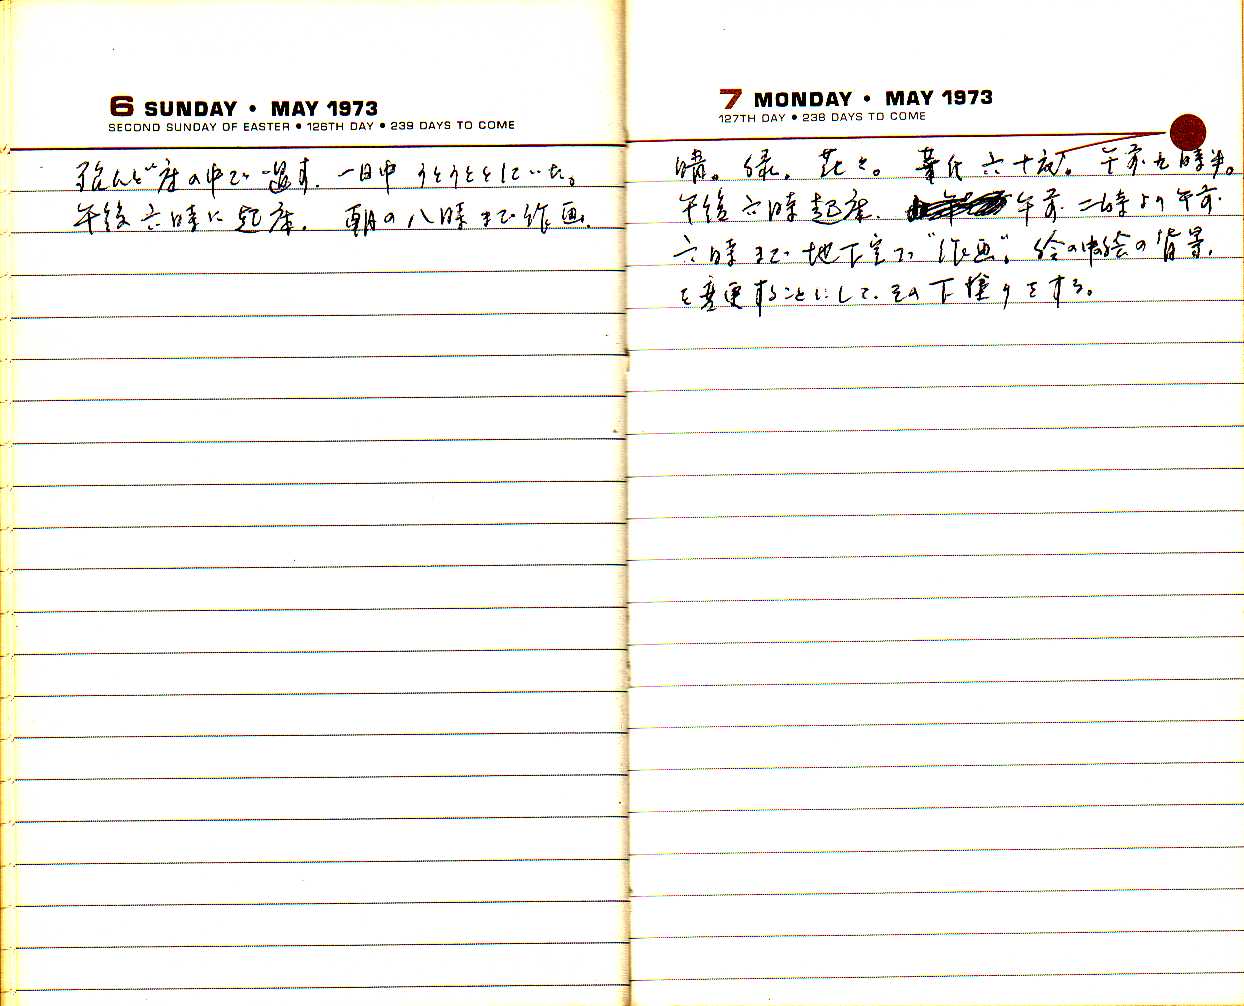 6 SUNDAY • MAY 1973
SECOND SUNDAY OF EASTER • 126TH DAY • 239 DAYS TO COME
殆んど床の中で過す。一日中うとうととしていた。
午後六時に起床。朝の八時まで作画。
7 MONDAY • MAY 1973
127TH DAY • 238 DAYS TO COME
晴。緑。花々。華氏六十度。午前九時半。
午後六時起床。午前二時より午前
六時まで地下室で“作画”。絵の中の絵の背景
を変更することにして、その下塗りをする。